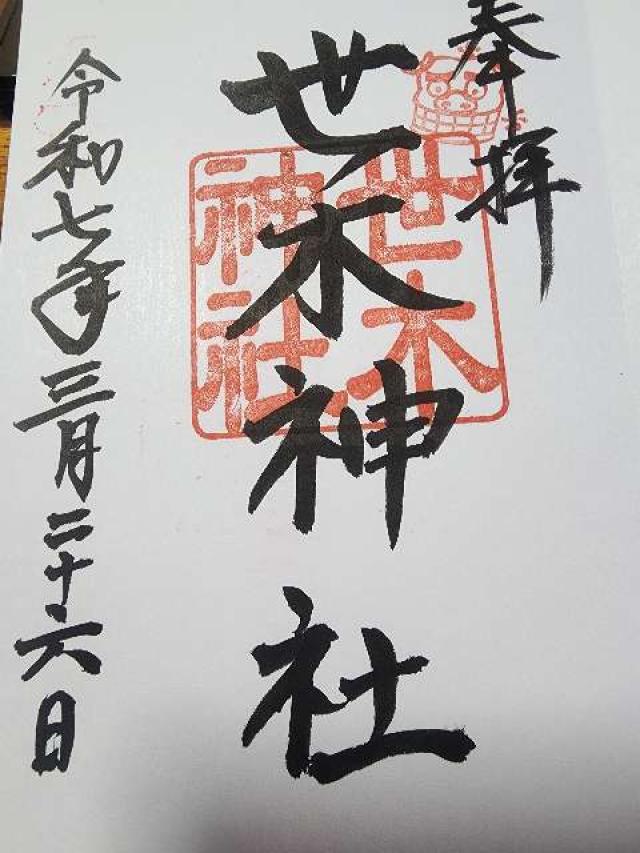 奉拝
世木神社
世木神社
令和七年三月二十六日